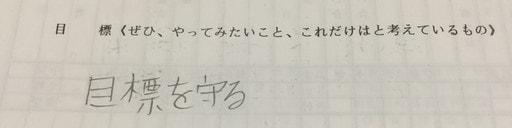 目　標《ぜひ、やってみたいこと、これだけはと考えているもの》
目標を守る